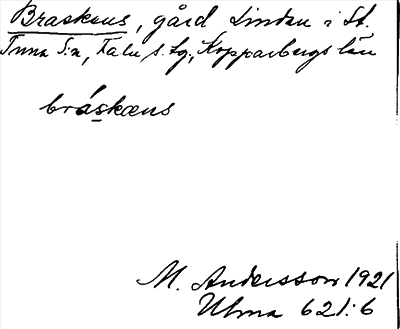 Braskens, gård Linden i St.
Tuna S:n, Falu s. Lg., Kopparbergs län
bråskæns
M. Andersson 1921
Ulma 621:6